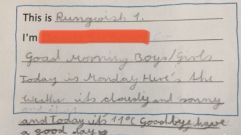 This is Rungwish 1.
I'm
Good Morning Boys/Girls
Today is Monday Here's the
its cloudy and sunny
and Today its 11°C Goodbye have
a good day